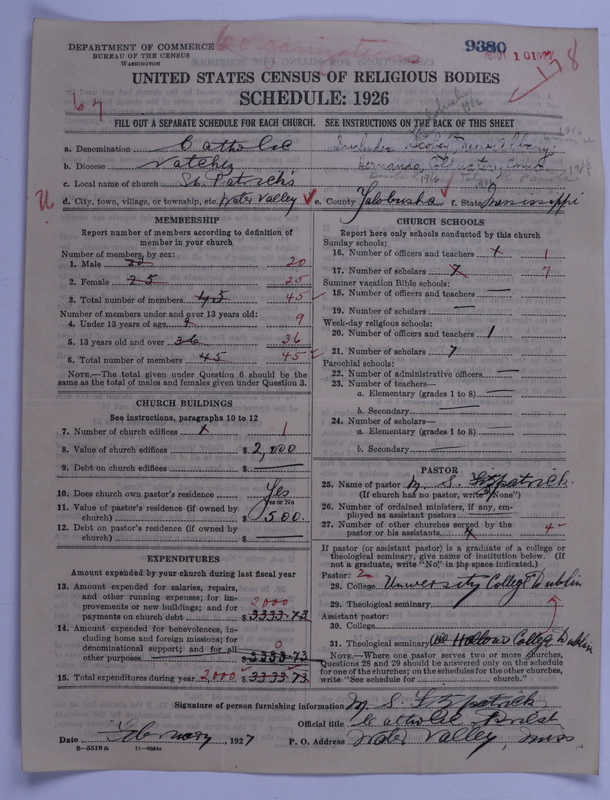 6 organizations
DEPARTMENT OF COMMERCE
BUREAU OF THE CENSUS
WASHINGTON
9380
178
UNITED STATES CENSUS OF RELIGIOUS BODIES
SCHEDULE: 1926
67
FILL OUT A SEPARATE SCHEDULE FOR EACH CHURCH. SEE INSTRUCTIONS ON THE BACK OF THIS SHEET
a. Denomination Catholic Includes
b. Diocese Natchez Hernando,
c. Local name of church St. Patrick's
d. City, town, village, or township, etc. Water Valley e. County Yalobusha f. State Mississippi
MEMBERSHIP
Report number of members according to definition of
member in your church
Number of members, by sex:
1. Male 20 20
2. Female 25 25
3. Total number of members 45 45
Number of members under and over 13 years old:
4. Under 13 years of age 9 9
5. 13 years old and over 36 36
6. Total number of members 45 45
NOTE.—The total given under Question 6 should be
same as the total of males and females given under Question 3.
CHURCH BUILDINGS
See instructions, paragraphs 10 to 12
7. Number of church edifices 1
8. Value of church edifices $ 2,000
9. Debt on church edifices $ —
10. Does church own pastor's residence Yes
Yes or No
11. Value of pastor's residence (if owned by
church) $ 500.
12. Debt on pastor's residence (if owned by
church) $ —
EXPENDITURES
Amount expended by your church during last fiscal year
13. Amount expended for salaries, repairs,
and other running expenses; for im-
provements or new buildings; and for 2000
payments on church debt $ 3333.73
14. Amount expended for benevolences, in-
cluding home and foreign missions; for
denominational support; and for all 0
other purposes $ 3333.73
15. Total expenditures during year 2,000 $ 3333.73
CHURCH SCHOOLS
Report here only schools conducted by this church
Sunday schools:
16. Number of officers and teachers 1
17. Number of scholars 7
Summer vacation Bible schools:
18. Number of officers and teachers —
19. Number of scholars —
Week-day religious schools:
20. Number of officers and teachers 1
21. Number of scholars 7
Parochial schools:
22. Number of administrative officers —
23. Number of teachers—
a. Elementary (grades 1 to 8) —
b. Secondary —
24. Number of scholars—
a. Elementary (grades 1 to 8) —
b. Secondary —
PASTOR
25. Name of pastor M. S. Fitzpatrick
(If church has no pastor, write "None")
26. Number of ordained ministers, if any, em-
ployed as assistant pastors —
27. Number of other churches served by the
pastor or his assistants 4
If pastor (or assistant pastor) is a graduate of a college or
theological seminary, give name of institution below. (If
not a graduate, write "No," in the space indicated.)
Pastor: 2
28. College University College Dublin
29. Theological seminary
Assistant pastor:
30. College
31. Theological seminary All Hallows College Dublin
NOTE.—Where one pastor serves two or more churches,
Questions 28 and 29 should be answered only on the schedule
for one of the churches; on the schedules for the other churches,
write "See schedule for church."
Signature of person furnishing information M. S. Fitzpatrick
Official title Catholic Priest
Date February, 1927 P. O. Address Water Valley, Miss
8—5518a 11—9034c